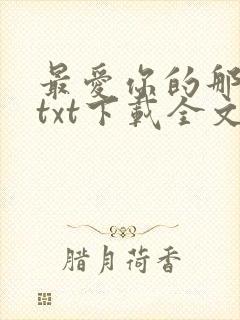 最爱你的那
txt下载全文
腊月荷香